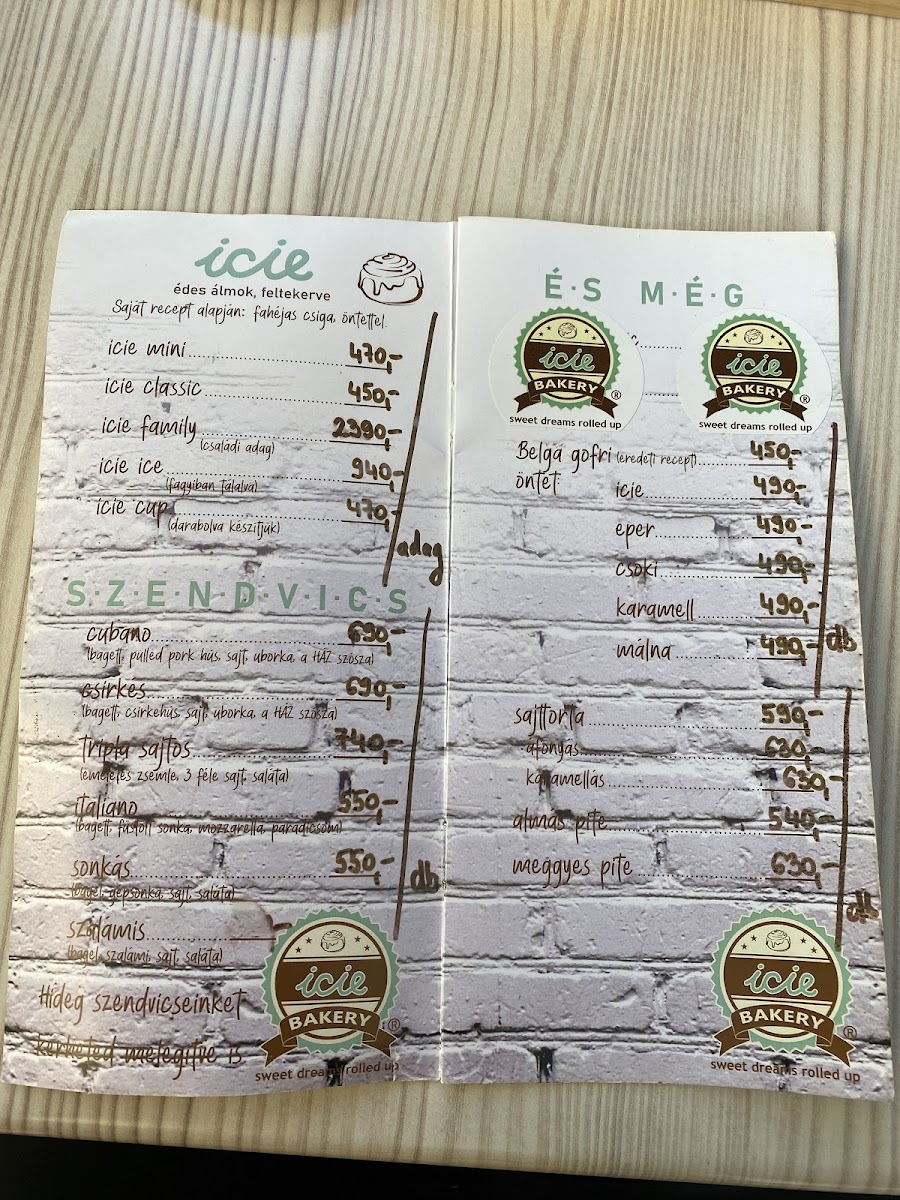 icie
édes álmok, feltekerve
Saját recept alapján: fahéjas csiga, öntettel.
icie mini 470,-
icie classic 450,-
icie family 2390,-
(családi adag)
icie ice 940,-
(fagyiban tálalva)
icie cup 470,-
(darabolva készítjük)
adag
S·Z·E·N·D·V·I·C·S
cubano 690,-
(bagett, pulled pork hús, sajt, uborka, a HÁZ szósza)
csirkés 690,-
(bagett, csirkehús, sajt, uborka, a HÁZ szósza)
tripla sajtos 740,-
(emeletes zsemle, 3 féle sajt, saláta)
italiano 550,-
(bagett, füstölt sonka, mozzarella, paradicsom)
sonkás 550,-
(bagel, gépsonka, sajt, saláta)
db
szalámis -
(bagel, szalámi, sajt, saláta)
Hideg szendvicseinket
kérheted melegítve is.
icie
BAKERY ®
sweet dreams rolled up
É·S M·É·G
icie
BAKERY ®
sweet dreams rolled up
icie
BAKERY ®
sweet dreams rolled up
Belga gofri (eredeti recept) 450,-
öntet: icie 490,-
eper 490,-
csoki 490,-
karamell 490,-
málna 490,-
db
sajttorta 590,-
áfonyás 630,-
karamellás 630,-
almás pite 540,-
meggyes pite 630,-
db
icie
BAKERY ®
sweet dreams rolled up